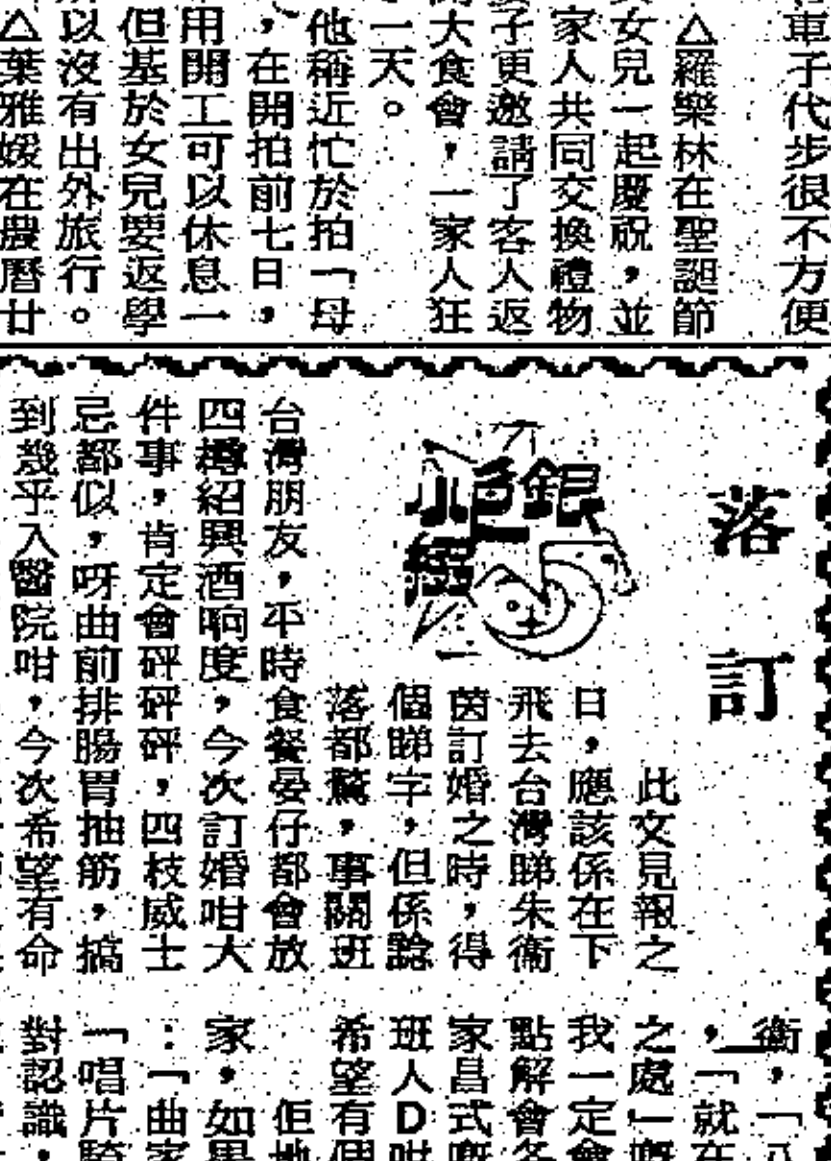 車子代步很不方便
△羅樂林在聖誕節
女兒一起慶祝，並
家人共同交換禮物
子更邀請了客人返
大食會，一家人狂
一天。
他稱近忙於拍「母
，在開拍前七日，
用開工可以休息一
但基於女兒要返學
以沒有出外旅行。
△葉雅媛在農曆廿
落訂
銀色小
此文見報之
日，應該係在下
飛去台灣睇朱衞
茵訂婚之時，得
個睇字，但係諗
落都驚，事關班
台灣朋友，平時食餐晏仔都會放
四樽紹興酒响度，今次訂婚咁大
件事，肯定會砰砰砰，四枝威士
忌都似，呀曲前排腸胃抽筋，搞
到幾乎入醫院咁，今次希望有命
衞，「八
，「就在
之處」嘅
我一定會
點解會名
家昌式嘅
班人D咁
希望有個
佢地
家，如果
：「曲家
「唱片騎
對認識，